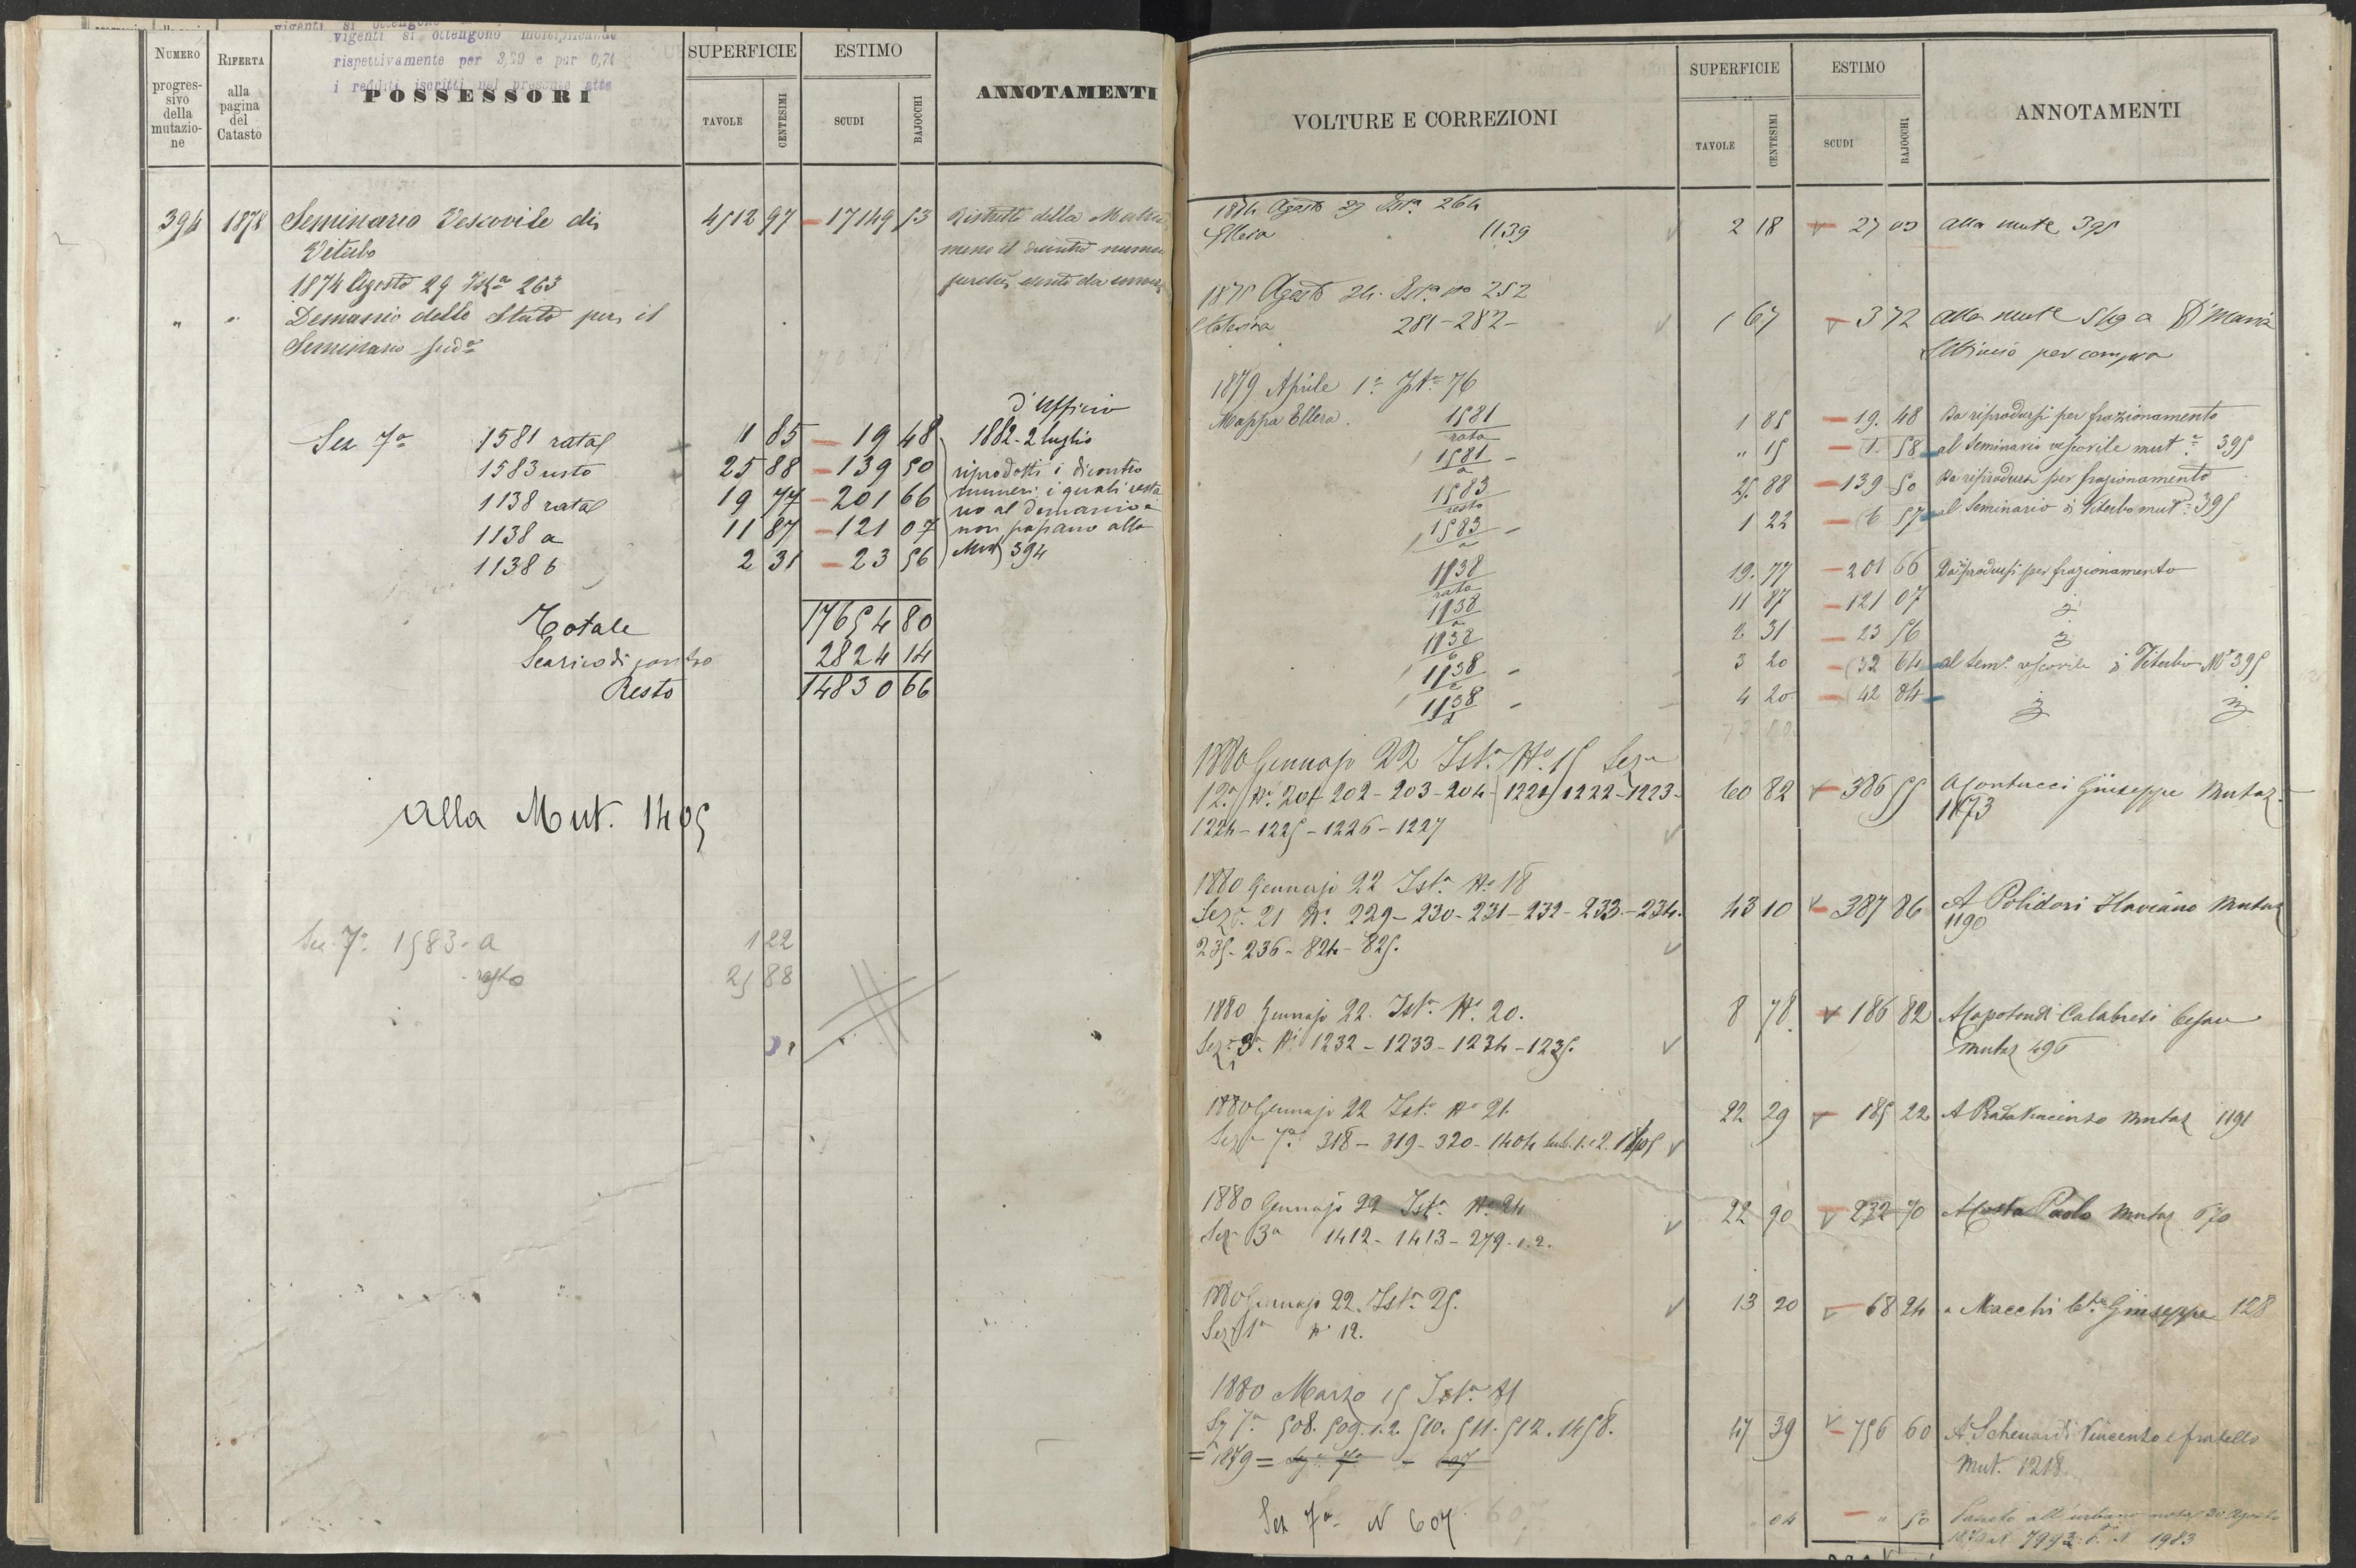 vigenti si ottengono moltiplicando
rispettivamente per 3,29 e per 0,71
i redditi iscritti nel presente atto
NUMERO progressivo della mutazione
RIFERTA alla pagina del Catasto
POSSESSORI
SUPERFICIE
TAVOLE
CENTESIMI
ESTIMO
SCUDI
BAJOCCHI
ANNOTAMENTI
394 1878 Seminario Vescovile di 4512 97 17149 53 Ristretto della
Viterbo meno il
1874 Agosto 29 263
" " Demanio dello Stato per il
Seminario sudo
d'Ufficio
Sez 7a 1581 rata 1 85 19 48 1882 - 2 luglio
1583 resto 25 88 139 50 riprodotti i dicontro
1138 rata 19 77 201 66 numeri i quali resta
1138 a 11 87 121 07 no al Demanio e
1138 b 2 31 23 56 non passano alla
Mut 394
Totale 17654 80
Scarico di contro 2824 14
Resto 14830 66
alla Mut. 1405
Sez. 7a 1583 - a 1 22
resto 25 88
VOLTURE E CORREZIONI
SUPERFICIE
TAVOLE
CENTESIMI
ESTIMO
SCUDI
BAJOCCHI
ANNOTAMENTI
1874 Agosto 29 Ista 264
1139 2 18 27 03 alla mut 395
1875 Agosto 24 Ista No 252
281 - 282 - 1 67 3 72 alla mut 549 a Di Maria
per compra
1879 Aprile 1o Ista 76
Mappa Ellera. 1581 rata 1 85 19. 48 Da riprodursi per frazionamento
1581 a " 15 1. 58 al Seminario vescovile mut. 395
1583 resto 25. 88 139 50 Da riprodursi per frazionamento
1583 a 1 22 6 57 al Seminario di Viterbo mut. 395
1138 rata 19. 77 201 66 Da riprodursi per frazionamento
1138 a 11 87 121 07
1138 b 2 31 23 56
1138 c 3 20 32 64 al Semo vescovile di Viterbo Mt 395
1138 d 4 20 42 84
1880 Gennajo 22 Ista No 15 Seza
12a No 201 - 202 - 203 - 204 - 1221 1222 - 1223 - 60 82 386 55 Giuseppe Mutaz
1224 - 1225 - 1226 - 1227 1173
1880 Gennajo 22 Ista No 18
Seza 21 No 229 - 230 - 231 - 232 - 233 - 234. 43 10 387 86 A Polidori Flaviano Mutaz
235 - 236 - 824 - 825. 1190
1880 Gennajo 22. Ista No. 20.
Seza 3a No 1232 - 1233 - 1234 - 1235. 8 78. 186 82 Calabresi Cesare
Mutaz 496
1880 Gennajo 22 Ista No 21
Seza 7a 318 - 319 - 320 - 1404 sub. 1. e 2. 1405 22 29 185 22 A Vincenzo Mutaz 1191
1880 Gennajo 22 Ista No 24
Seza 3a 1412 - 1413 - 279. 1. 2. 22 90 232 70 A Costa Paolo Mutaz 670
1880 Gennajo 22. Ista 25.
Seza 1a No 12. 13 20 68 24 a Macchi Giuseppe 128
1880 Marzo 15 Ista 81
Sz 7a 508. 509. 1. 2. 510. 511. 512. 1458. 47 39 756 60 A Schenardi Vincenzo e fratello
= 1879 = Mut. 1218
Sez 7a N 607 " 04 " 50 all'urbano 20 Agosto
1879 N 7993 1983